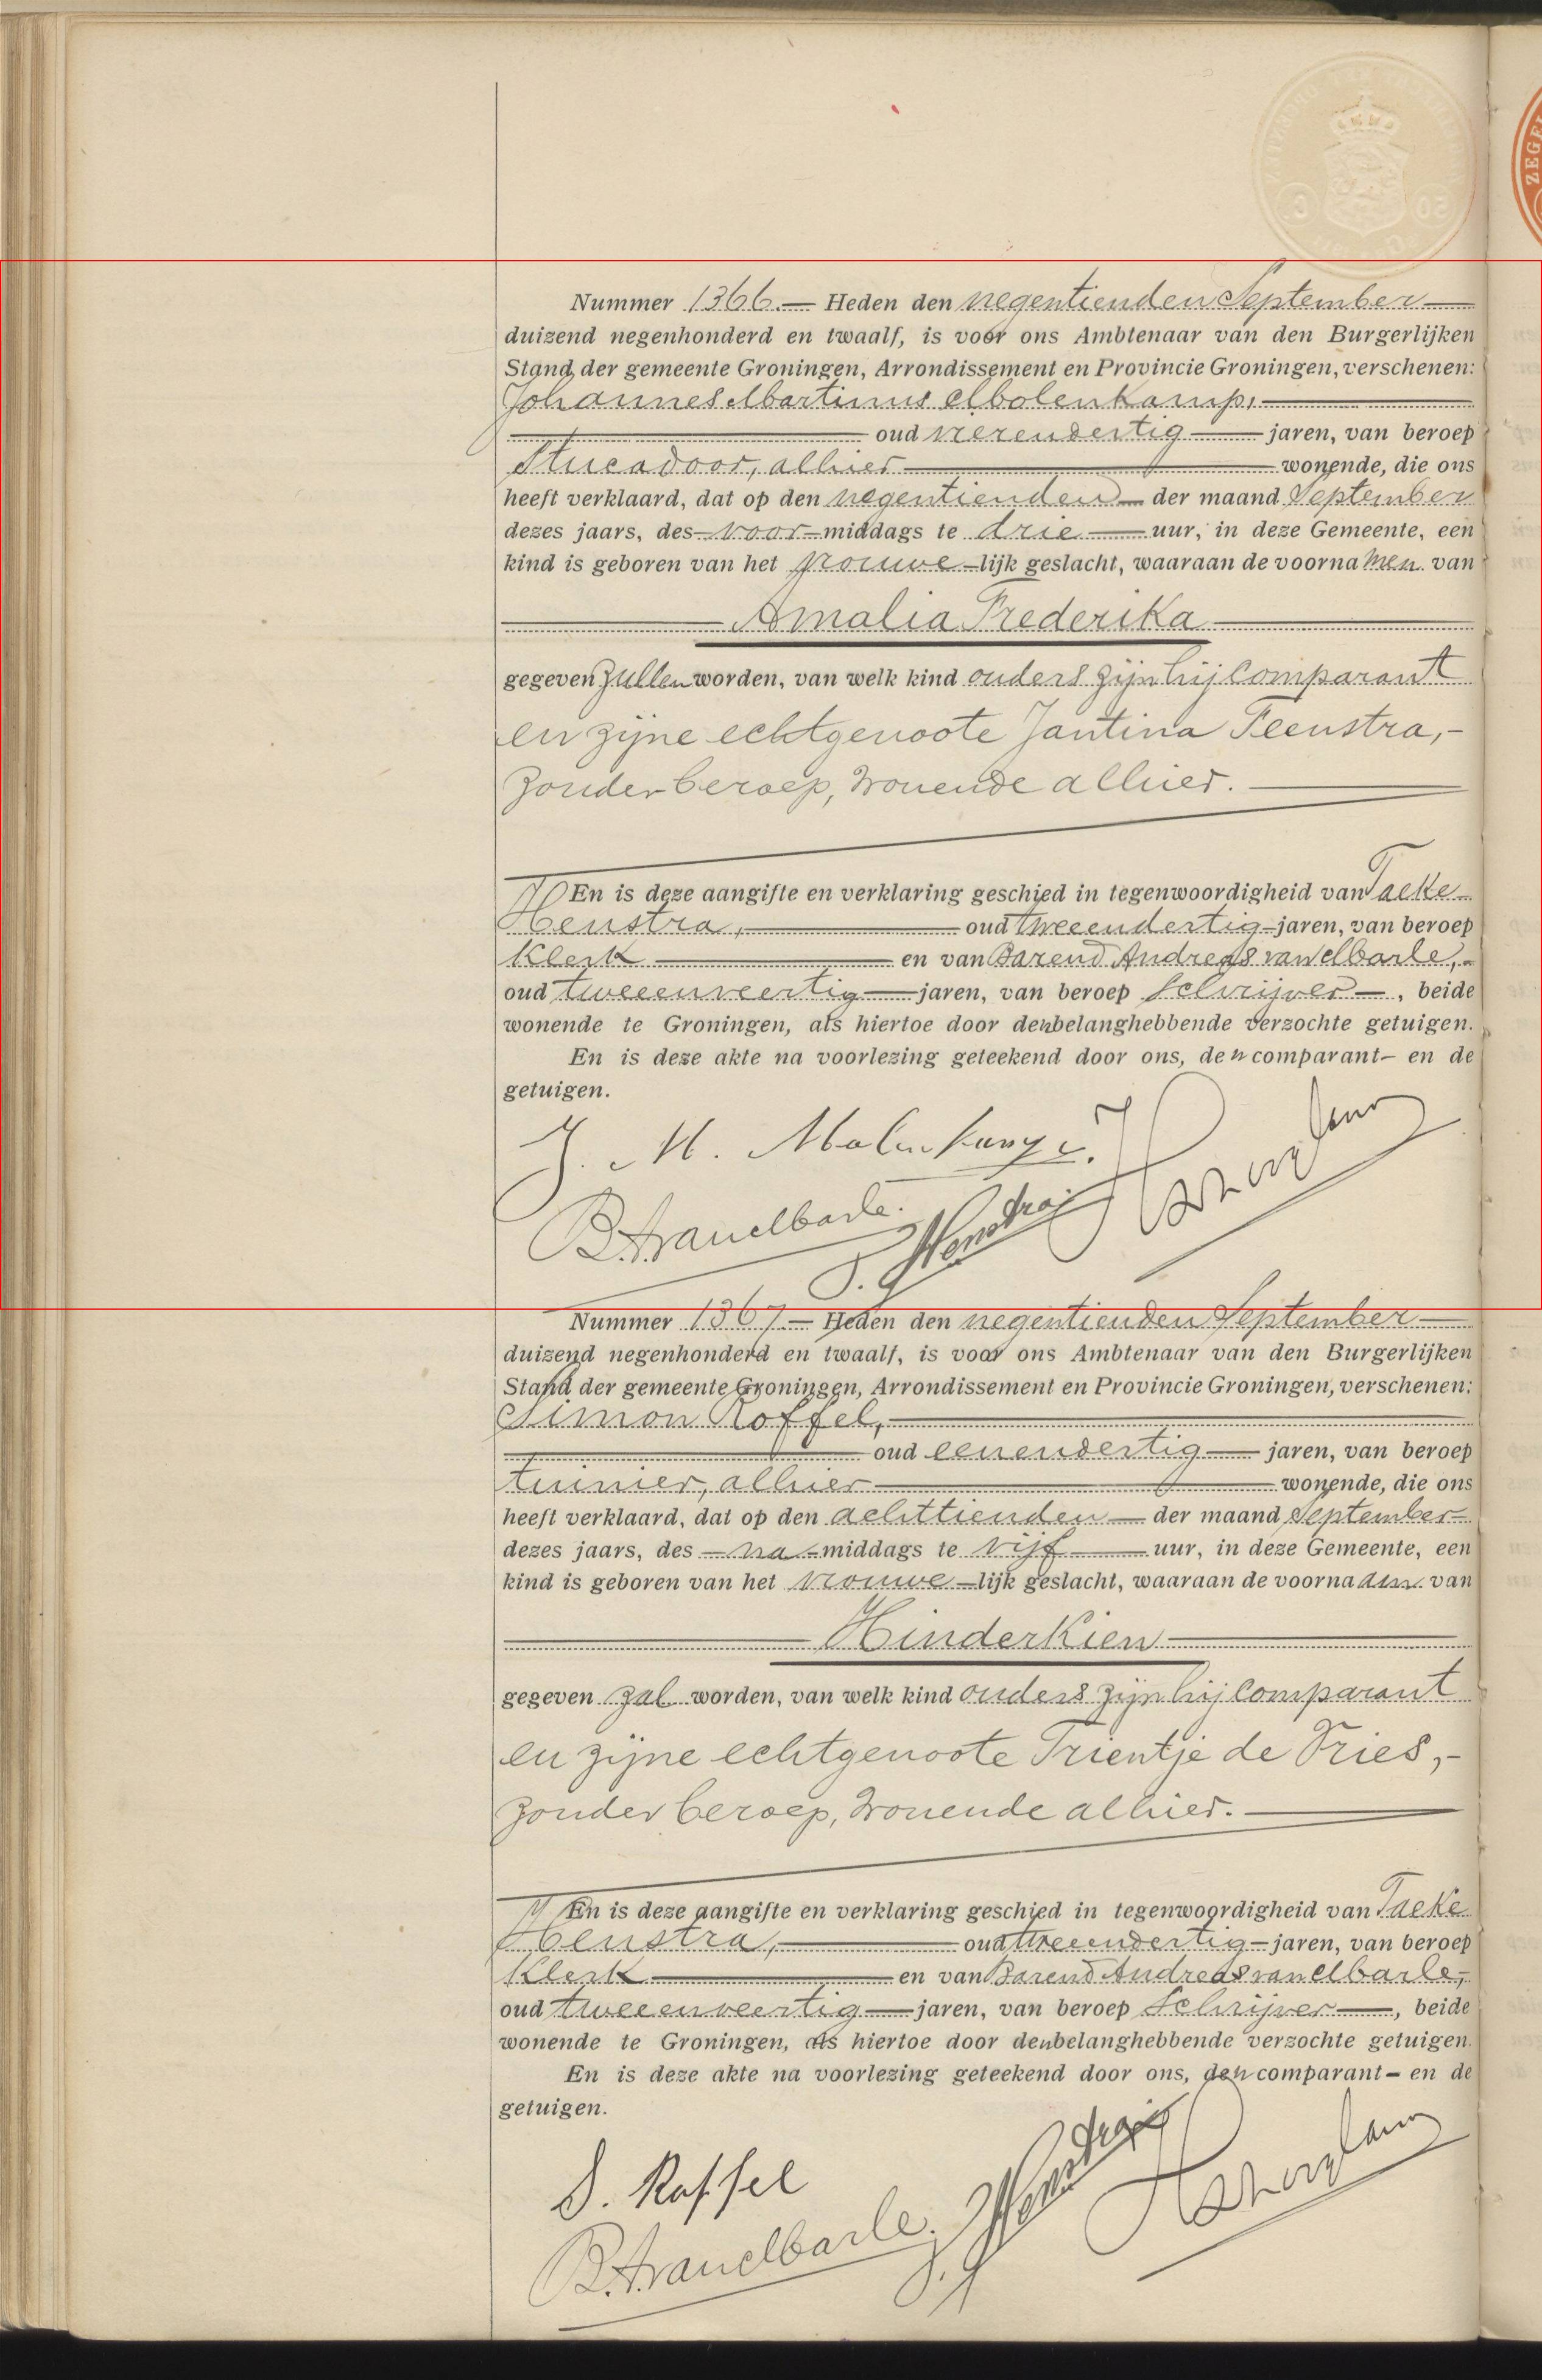 Nummer 1366.— Heden den negentienden September—
duizend negenhonderd en twaalf, is voor ons Ambtenaar van den Burgerlijken
Stand der gemeente Groningen, Arrondissement en Provincie Groningen, verschenen:
Johannes Martinus Molenkamp,
oud vierendertig jaren, van beroep
Stucadoor, alhier wonende, die ons
heeft verklaard, dat op den negentienden der maand September
dezes jaars, des voor-middags te drie uur, in deze Gemeente, een
kind is geboren van het vrouwe-lijk geslacht, waaraan de voornamen van
Amalia Frederika
gegeven zullen worden, van welk kind ouders zijn hij Comparant
en zijne echtgenoote Jantina Feenstra,-
zonder beroep, wonende alhier.
En is deze aangifte en verklaring geschied in tegenwoordigheid van Taeke
Henstra, oud tweeendertig jaren, van beroep
Klerk en van Barend Andreas van Marle,
oud tweeenveertig jaren, van beroep Schrijver, beide
wonende te Groningen, als hiertoe door den belanghebbende verzochte getuigen.
En is deze akte na voorlezing geteekend door ons, den comparant- en de
getuigen.
J. M. Molenkamp.
B.A. van Marle.
T. Henstra
Nummer 1367.— Heden den negentienden September—
duizend negenhonderd en twaalf, is voor ons Ambtenaar van den Burgerlijken
Stand der gemeente Groningen, Arrondissement en Provincie Groningen, verschenen:
Simon Roffel,
oud eenendertig jaren, van beroep
tuinier, alhier wonende, die ons
heeft verklaard, dat op den achttienden der maand September
dezes jaars, des na-middags te vijf uur, in deze Gemeente, een
kind is geboren van het vrouwe-lijk geslacht, waaraan de voornaam van
Hinderkien
gegeven zal worden, van welk kind ouders zijn hij Comparant
en zijne echtgenoote Trientje de Vries,-
zonder beroep, wonende alhier.
En is deze aangifte en verklaring geschied in tegenwoordigheid van Taeke
Henstra, oud tweeendertig jaren, van beroep
Klerk en van Barend Andreas van Marle,
oud tweeenveertig jaren, van beroep Schrijver, beide
wonende te Groningen, als hiertoe door den belanghebbende verzochte getuigen.
En is deze akte na voorlezing geteekend door ons, den comparant- en de
getuigen.
S. Roffel
B.A. van Marle.
T. Henstra